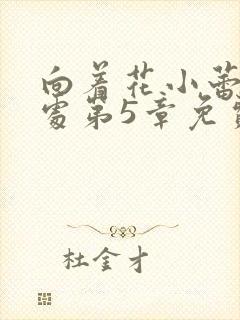 向着花小蕾
处第5章免费
杜金才